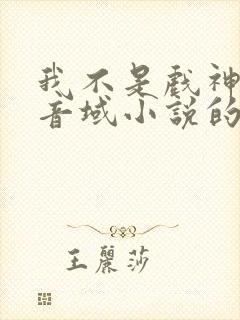 我不是戲神
音域小說的
王麗莎